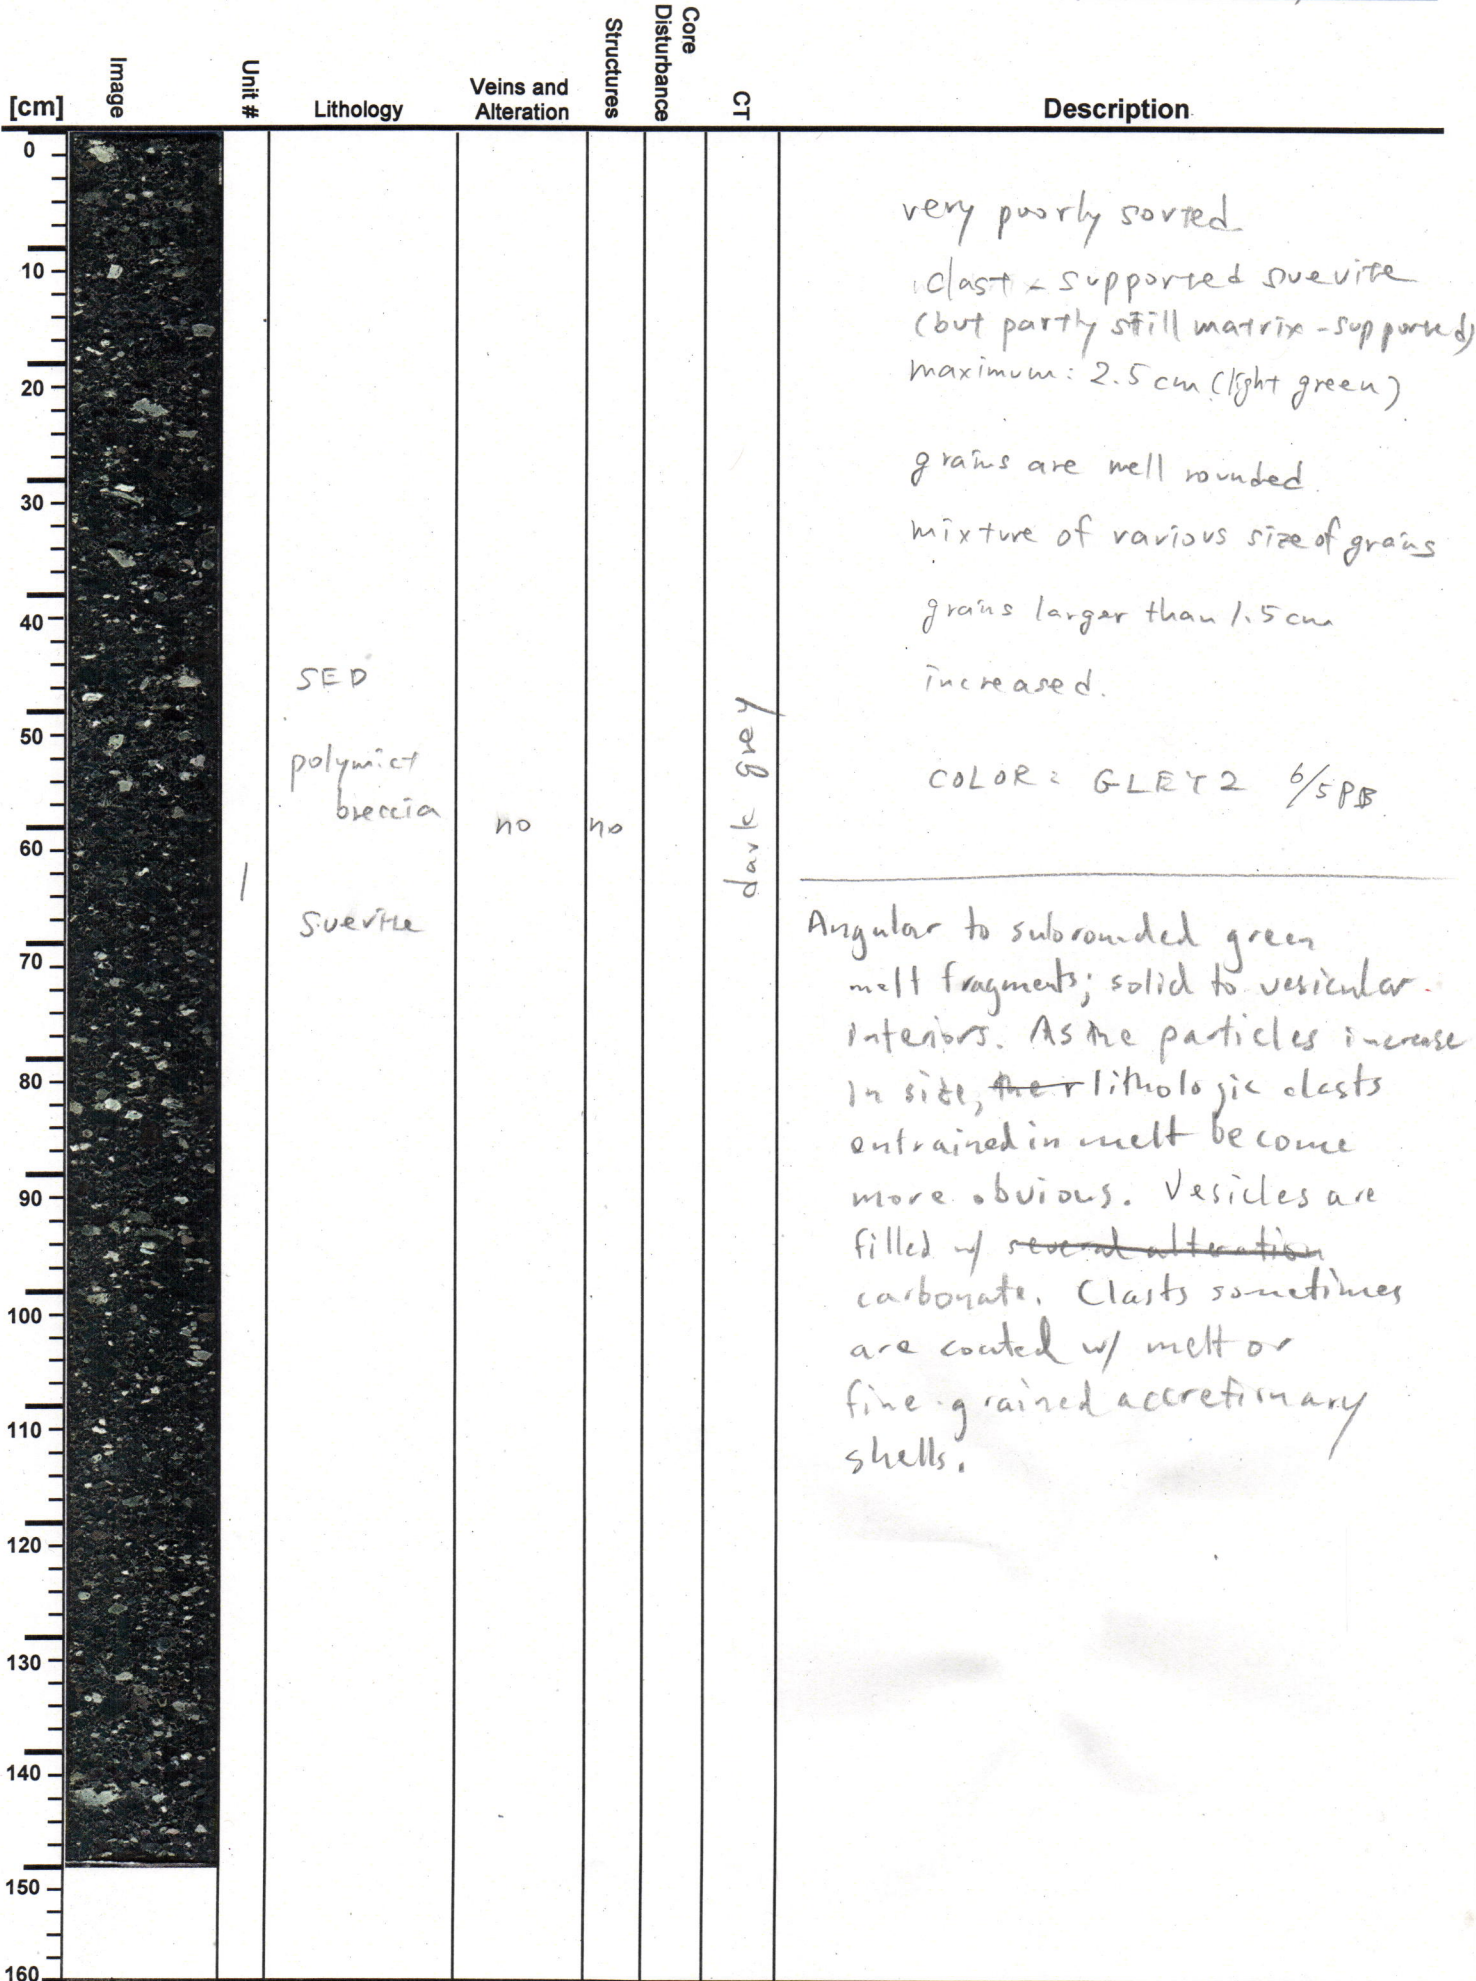 Core
Disturbance
Structures
Image
Unit #
CT
Veins and
[cm]
Lithology
Alteration
Description
0
10
20
30
40
50
60
70
80
90
100
110
120
130
140
150
160
1
SED
polymict
breccia
suevite
no
no
dark grey
very poorly sorted
clast - supported suevite
(but partly still matrix - supported)
maximum: 2.5 cm (light green)
grains are well rounded.
mixture of various size of grains
grains larger than 1.5 cm
increased.
COLOR: GLEY 2 6/5PB
Angular to subrounded green
melt fragments; solid to vesicular
interiors. As the particles increase
in size, their lithologic clasts
entrained in melt become
more obvious. Vesicles are
filled w/ several alteration
carbonate. Clasts sometimes
are coated w/ melt or
fine-grained accretionary
shells.